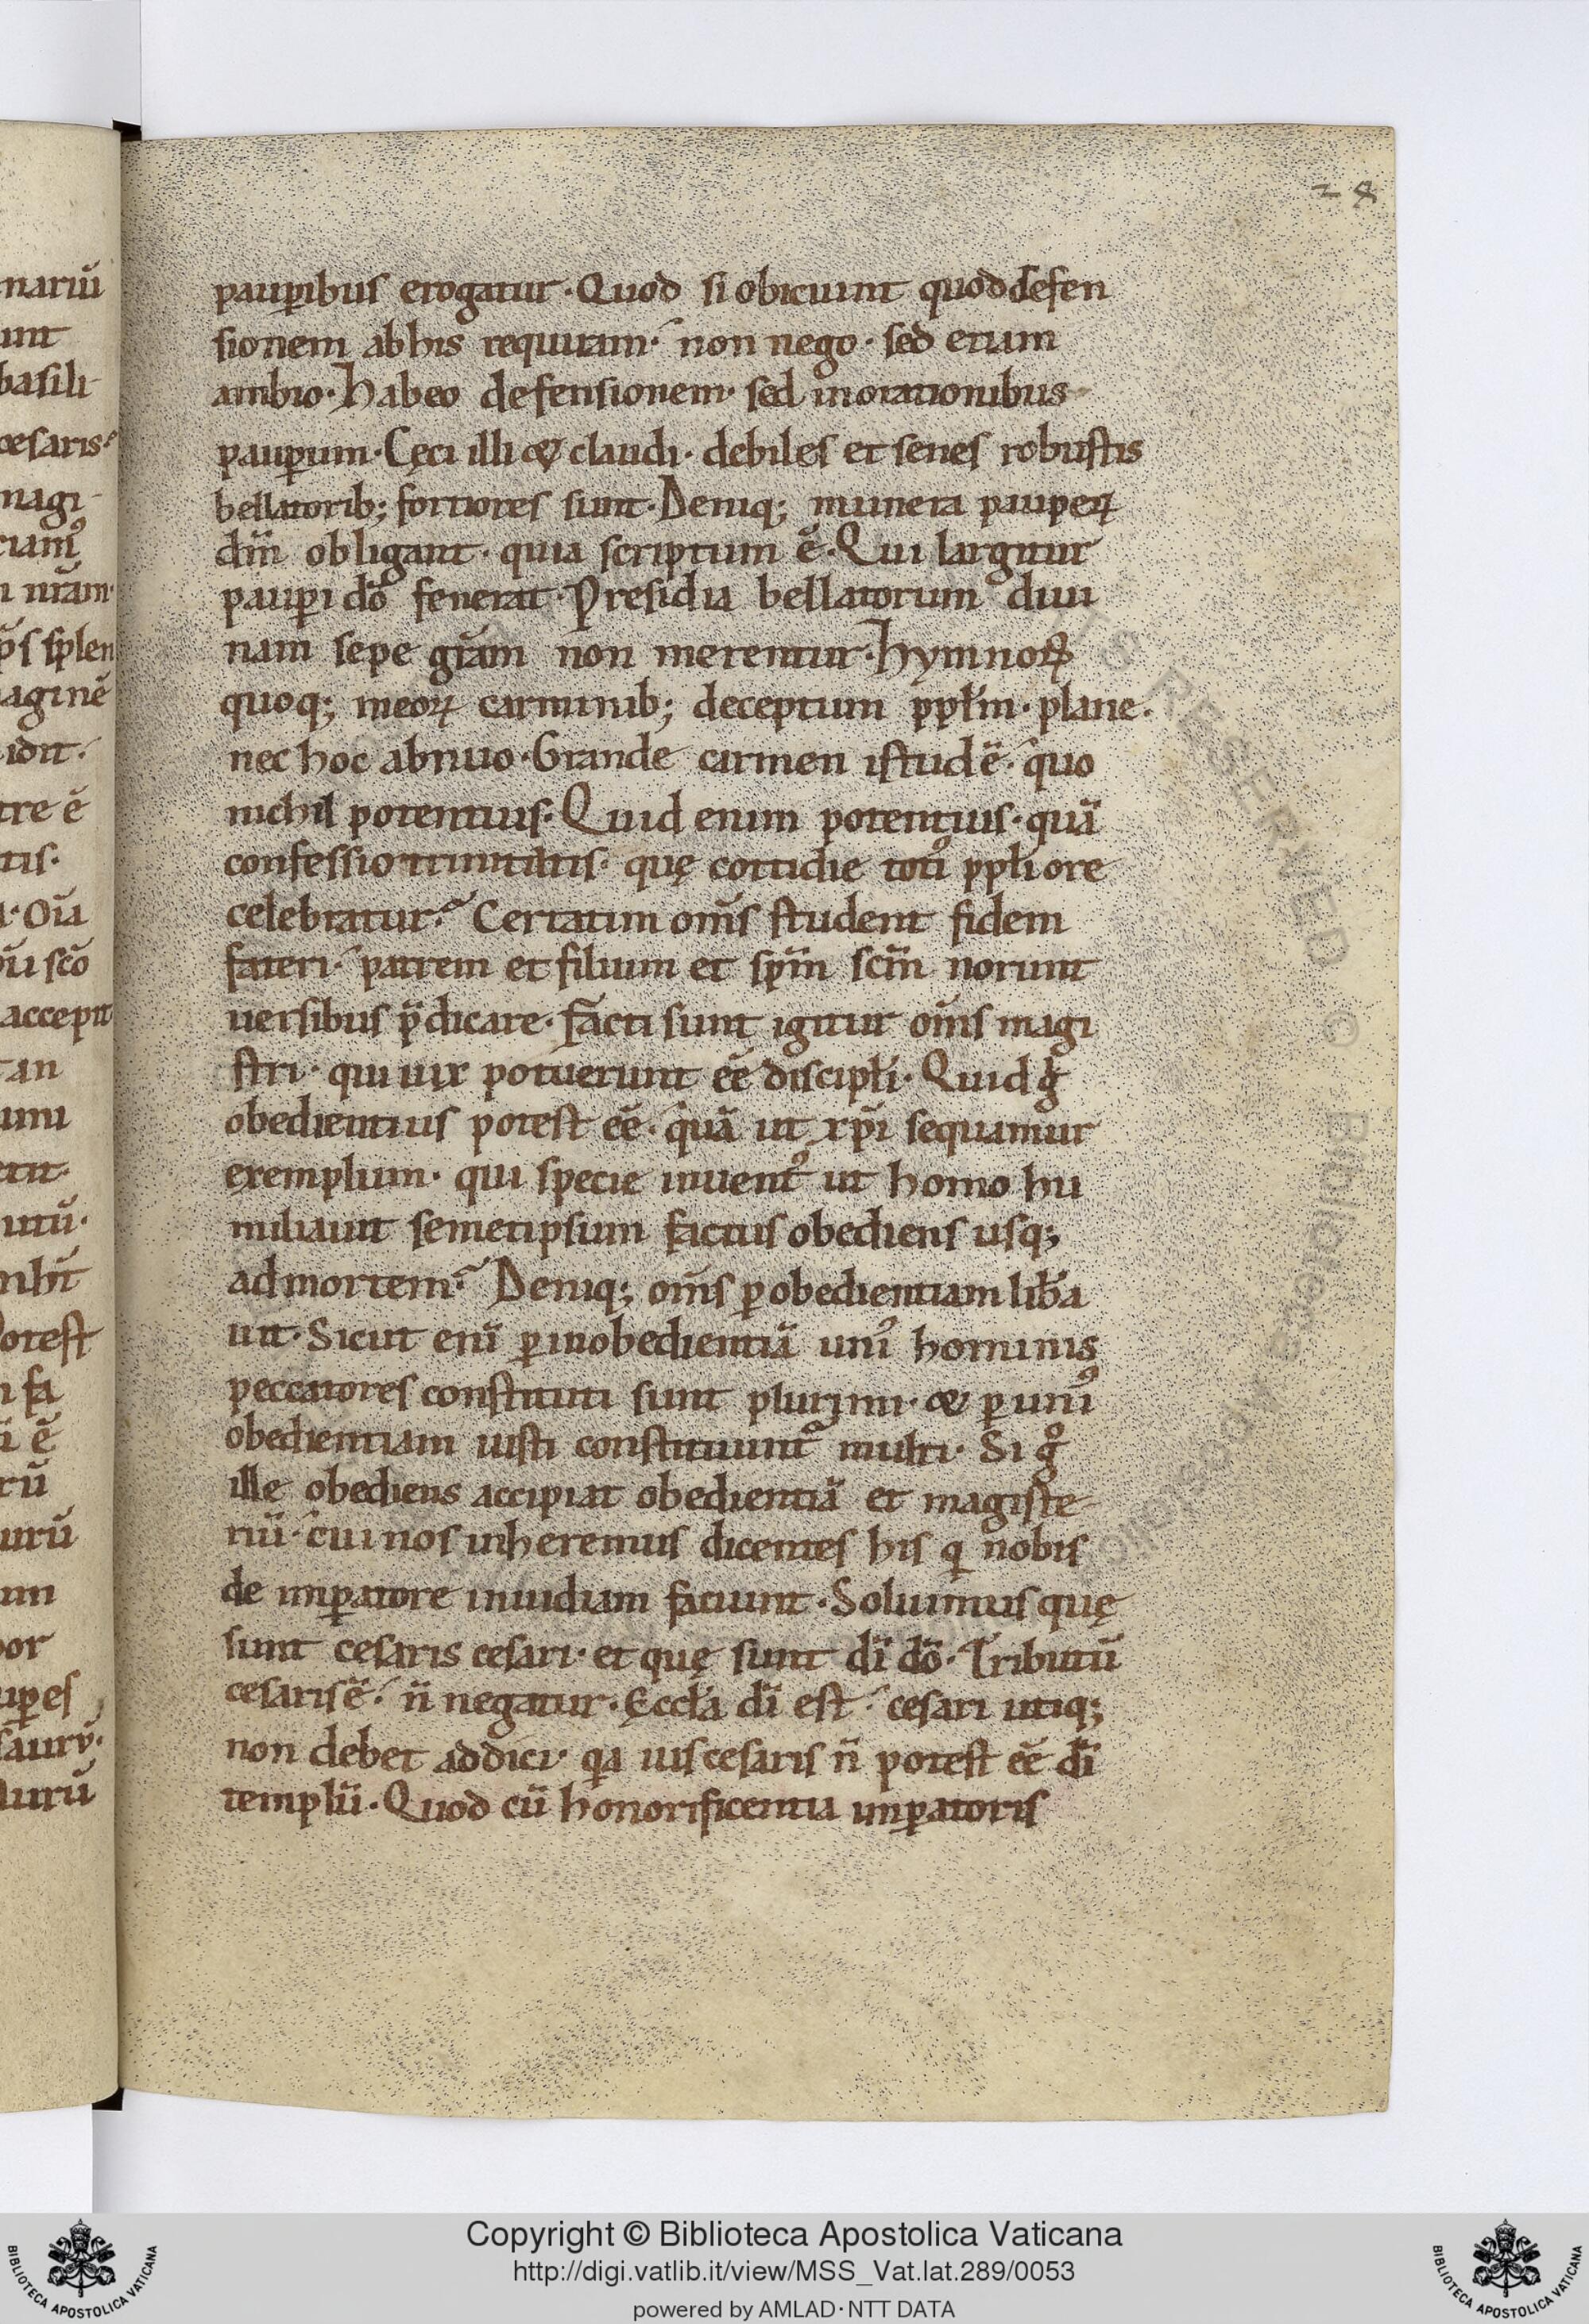 28
pauꝑibus erogatur · Quod si obiciunt quod defen
sionem ab his requiram · non nego · sed etiam
ambio · habeo defensionem · sed in orationibus
pauꝑum · Cęci illi & claudi · debiles et senes robustis
bellatorib; fortiores sunt · Deniq; munera pauperꝝ
dm̄ obligant · quia scriptum ē · Qui largitur
pauꝑi dō fenerat · Presidia bellatorum diui
nam sepe gr̄am non merentur · hymnoꝝ
quoq; meoꝝ carminib; deceptum pplm̄ · plane ·
nec hoc abnuo · Grande carmen istud ē · quo
nichil potentius · Quid enim potentius · quā
confessio trinitatis · quę cottidie toti᾿ ppli ore
celebratur? Certatim om̄s student fidem
fateri · patrem et filium et sp̄m sc̄m norunt
uersibus p̄dicare · facti sunt igitur om̄s magi
stri · qui uix potuerunt eē discipłi · Quid g̊
obedientius potest eē · quā ut xp̄i sequamur
exemplum · qui specie inuent᾿ ut homo hu
miliauit semetipsum factus obediens usq;
ad mortem? Deniq; om̄s ꝑ obedientiam lib̄a
uit · Sicut eni̅ ꝑ inobedientiā uni᾿ hominis
peccatores constituti sunt plurimi · & ꝑ uni᾿
obedientiam iusti constituunt᾿ multi · Si g̊
ille obediens accipiat obedientiā et magiste
riū · cui nos inheremus dicentes his q̇ nobis
de imꝑatore inuidiam faciunt · Soluimus quę
sunt cesaris cesari · et quę sunt dī dō · Tributū
cesaris ē · n̄ negatur · Ęccła dī est · cesari utiq;
non debet addici · qa ius cesaris n̄ potest eē dī
templū · Quod cū honorificentia imꝑatoris
nariū
unt
basili
cesaris·
magi
ciam᾿
n nr̄am·
splen
aginē
idit·
tre ē
tis·
Oīa
scō
accepit
an
etit·
utū·
otest
fa
ē
rū
urū
or
uꝑes
Copyright © Biblioteca Apostolica Vaticana
http://digi.vatlib.it/view/MSS_Vat.lat.289/0053
powered by AMLAD·NTT DATA
BIBLIOTECA APOSTOLICA VATICANA
BIBLIOTECA APOSTOLICA VATICANA